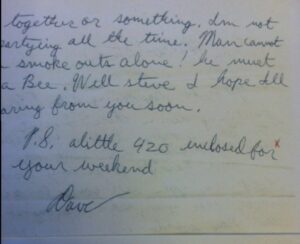 together or something. I'm not
partying all the time. Man cannot
smoke outs alone! he must
a Bee. Well steve I hope I'll
from you soon.
P.S. alittle 420 enclosed for
your weekend
Dave